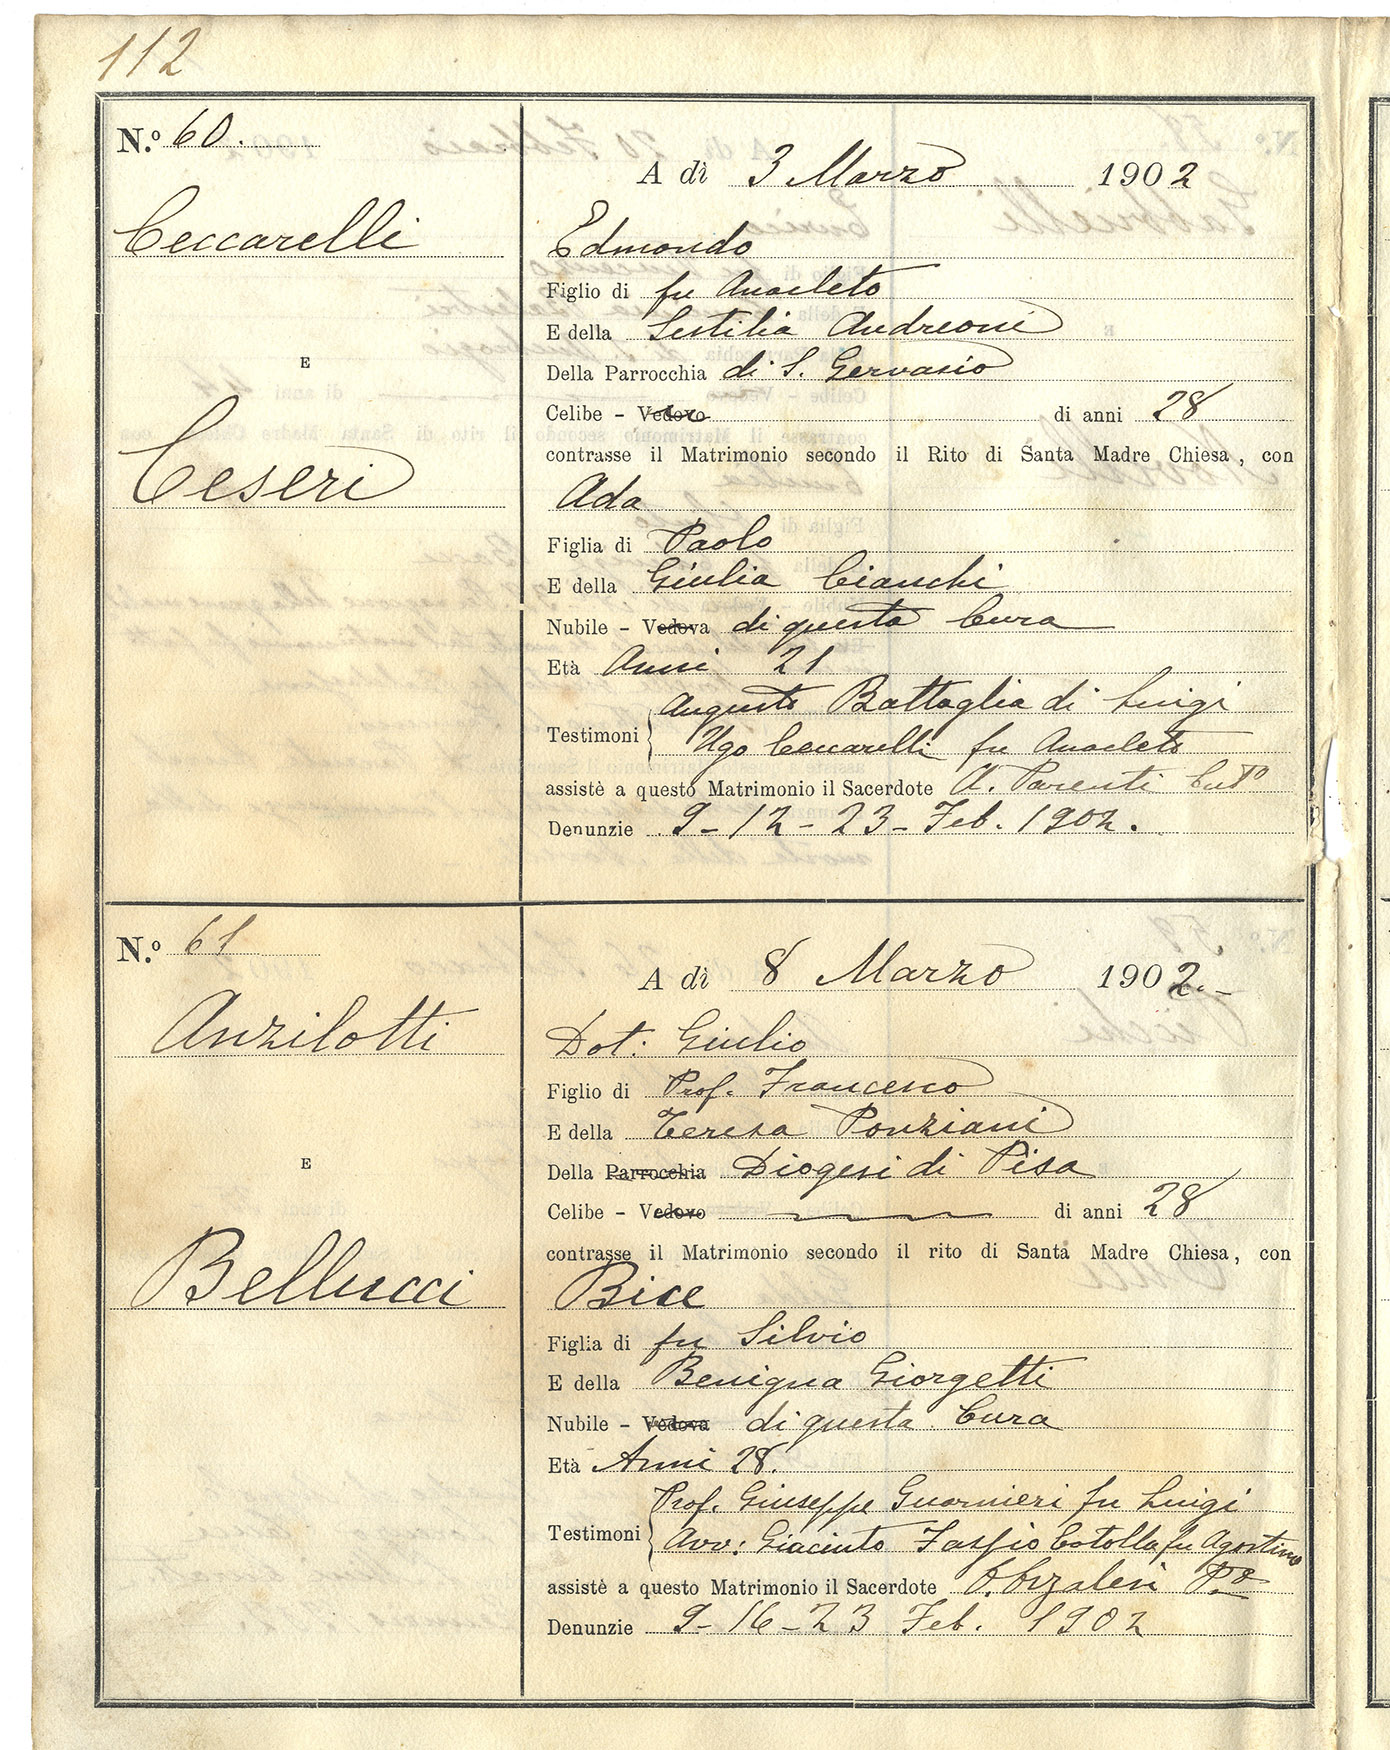 112
N.º 60.
A dì 3 Marzo 1902
Ceccarelli
Edmondo
Figlio di fu Anacleto
E della Sestilia Andreoni
Della Parrocchia di S. Gervasio
E
Celibe - Vedovo di anni 28
contrasse il Matrimonio secondo il Rito di Santa Madre Chiesa, con
Ceseri
Ada
Figlia di Paolo
E della Giulia Cianchi
Nubile - Vedova di questa Cura
Età Anni 21
Testimoni Augusto Battaglia di Luigi
Ugo Ceccarelli fu Anacleto
assistè a questo Matrimonio il Sacerdote A. Parenti Curº
Denunzie 9 - 12 - 23 - Feb. 1902.
N.º 61
A dì 8 Marzo 1902.-
Anzilotti
Dot: Giulio
Figlio di Prof. Francesco
E della Teresa Ponziani
Della Parrocchia Diogesi di Pisa
E
Celibe - Vedovo di anni 28
contrasse il Matrimonio secondo il rito di Santa Madre Chiesa, con
Bellucci
Bice
Figlia di fu Silvio
E della Benigna Giorgetti
Nubile - Vedova di questa Cura
Età Anni 28.
Testimoni Prof. Giuseppe Guarnieri fu Luigi
Avv: Giacinto fu Agostino
assistè a questo Matrimonio il Sacerdote
Denunzie 9 - 16 - 23 Feb. 1902